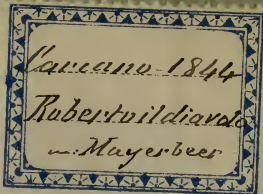 Carcano 1844
Robertoildiavolo
m: Mayerbeer